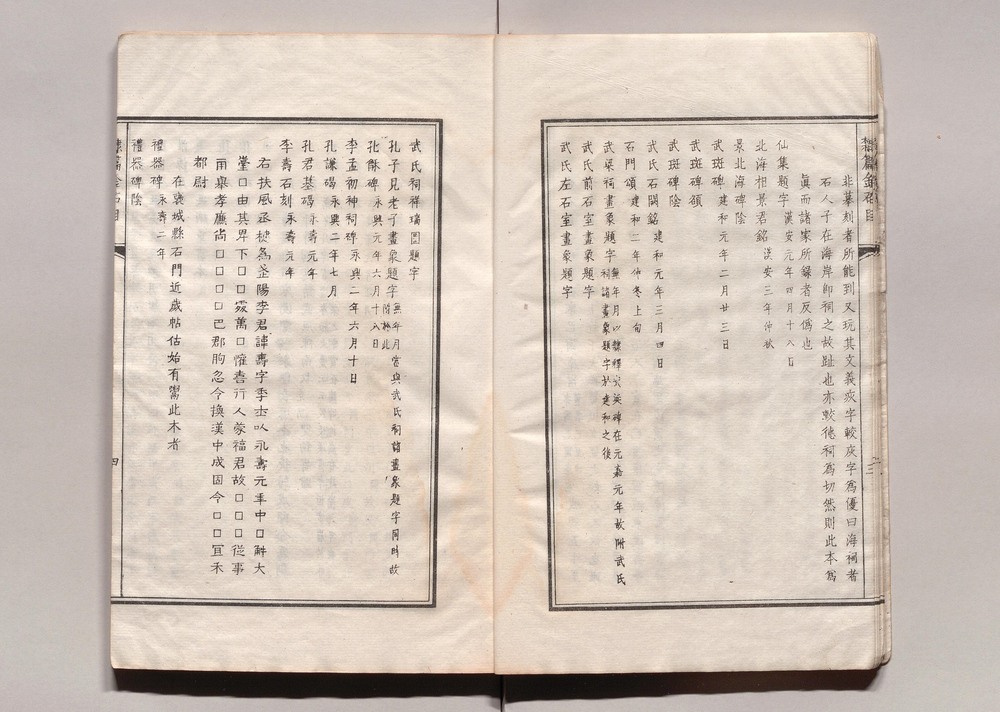 非摹刻者所能到又玩其文義疾字較灰字為優曰海祠者
石人子在海岸即祠之故趾也亦較德祠為切然則此本為
真而諸家所錄者反偽也
仙集題字漢安元年四月十八日
北海相景君銘漢安三年仲秋
景北海碑陰
武斑碑建和元年二月廿三日
武斑碑領
武斑碑陰
武氏石闕銘建和元年三月四日
石門頌建和二年仲冬上旬
武梁祠畫象題字無年月以隸釋武梁碑在元嘉元年故附武氏
祠諸畫象題字於建和之後
武氏前石室畫象題字
武氏左石室畫象題字
武氏祠祥瑞圖題字
孔子見老子畫象題字無年月舊與武氏祠諸畫象題字同時故
附於此
孔龢碑永興元年六月十八日
李孟初神祠碑永興二年六月十日
孔謙碣永興二年七月
孔君墓碣永壽元年
李壽石刻永壽元年
右扶風丞楗為武陽李君諱壽字季士以永壽元年中□解大
臺□由其昇下□□億萬□惟春行人蒙福君故□□□從事
再舉孝廉尚□□□□巴郡朐忍令換漢中成固令□□宜禾
都尉
在襃城縣石門近歲帖估始有鬻此本者
禮器碑永壽二年
禮器碑陰
四